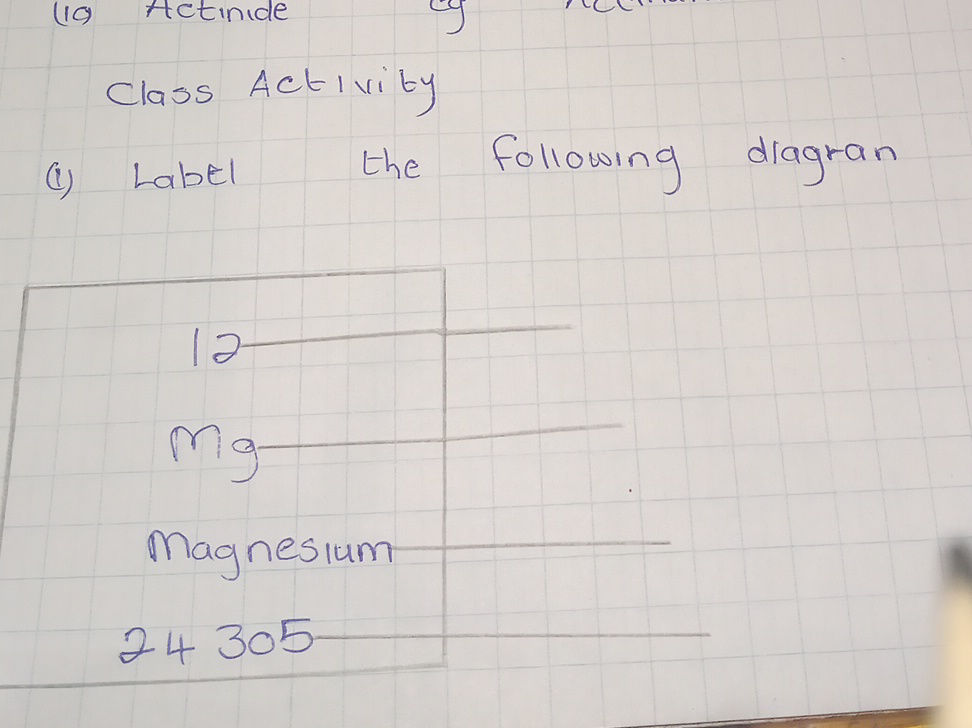 (19 Actinide eg
Class Activity
(1) Label the following diagran
12
Mg
Magnesium
24 305